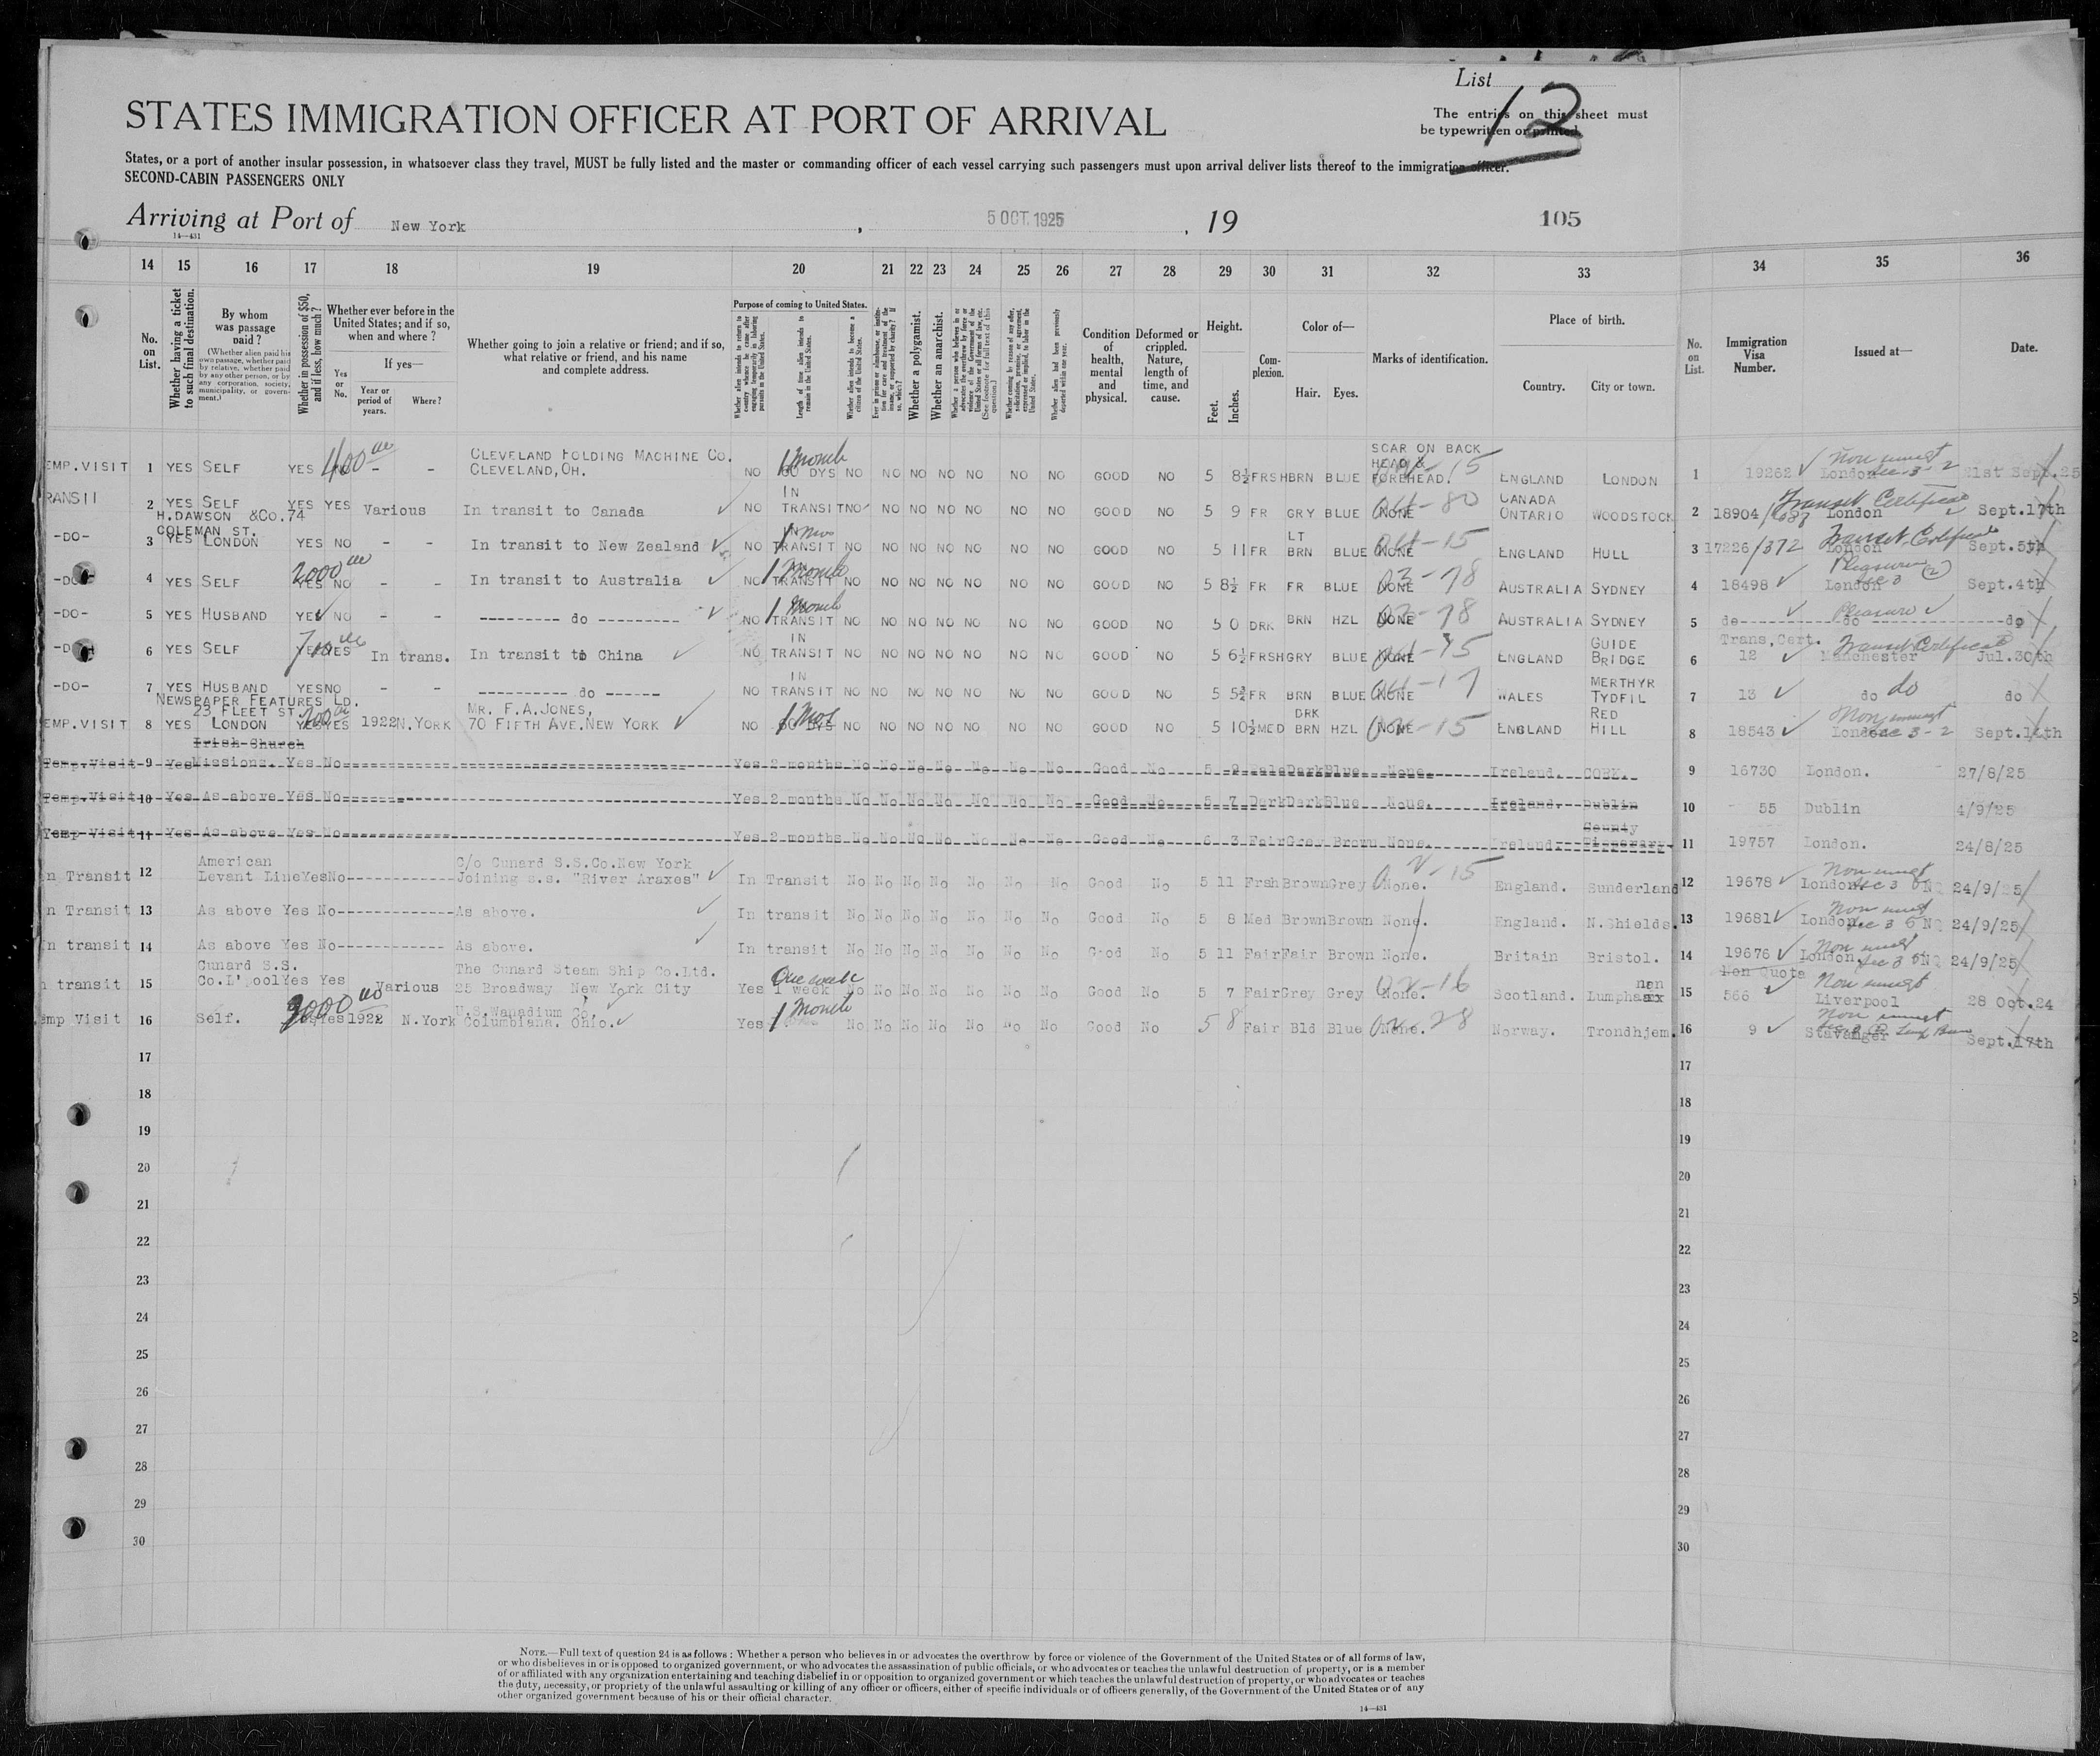 List 12
STATES IMMIGRATION OFFICER AT PORT OF ARRIVAL
The entries on this sheet must
be typewritten or printed.
States, or a port of another insular possession, in whatsoever class they travel, MUST be fully listed and the master or commanding officer of each vessel carrying such passengers must upon arrival deliver lists thereof to the immigration officer.
SECOND-CABIN PASSENGERS ONLY
Arriving at Port of New York , 5 OCT. 1925 , 19 105
14—431
14 15 16 17 18 19 20 21 22 23 24 25 26 27 28 29 30 31 32 33 34 35 36
No. on List.
Whether having a ticket to such final destination.
By whom was passage paid?
(Whether alien paid his own passage, whether paid by relative, whether paid by any other person, or by any corporation, society, municipality, or government.)
Whether in possession of $50, and if less, how much?
Whether ever before in the United States; and if so, when and where?
If yes—
Yes or No.
Year or period of years.
Where?
Whether going to join a relative or friend; and if so, what relative or friend, and his name and complete address.
Purpose of coming to United States.
Whether alien intends to return to country whence he came after engaging temporarily in laboring pursuits in the United States.
Length of time alien intends to remain in the United States.
Whether alien intends to become a citizen of the United States.
Ever in prison or almshouse, or institution for care and treatment of the insane, or supported by charity? If so, which?
Whether a polygamist.
Whether an anarchist.
Whether coming by reason of any offer, solicitation, promise, or agreement, expressed or implied, to labor in the United States.
Whether alien had been previously deported within one year.
Condition of health, mental and physical.
Deformed or crippled. Nature, length of time, and cause.
Height.
Feet. Inches.
Complexion.
Color of—
Hair. Eyes.
Marks of identification.
Place of birth.
Country. City or town.
No. on List.
Immigration Visa Number.
Issued at—
Date.
EMP.VISIT 1 YES SELF YES 400 00 - - CLEVELAND FOLDING MACHINE CO. CLEVELAND,OH. NO 1 Month 60 DYS NO NO NO NO NO NO NO GOOD NO 5 8½ FRSH BRN BLUE SCAR ON BACK HEAD & FOREHEAD. ENGLAND LONDON 1 19262 London Non immgt Sec 3-2 21st Sept.25
RANSIT 2 YES SELF YES YES Various In transit to Canada NO IN TRANSIT NO NO NO NO NO NO NO GOOD NO 5 9 FR GRY BLUE NONE CANADA ONTARIO WOODSTOCK 2 18904 London Transit Certificate Sept.17th
-DO- 3 YES H.DAWSON &Co.74 COLEMAN ST. LONDON YES NO In transit to New Zealand NO IN TRANSIT NO NO NO NO NO NO NO GOOD NO 5 11 FR LT BRN BLUE NONE ENGLAND HULL 3 17226/372 London Transit Certificate Sept.5th
-DO- 4 YES SELF 2000 00 YES NO In transit to Australia NO 1 Month TRANSIT NO NO NO NO NO NO NO GOOD NO 5 8½ FR FR BLUE NONE 03-78 AUSTRALIA SYDNEY 4 18498 London Pleasure Sec 3 (2) Sept.4th
-DO- 5 YES HUSBAND YES NO - - ---------- do --------- NO 1 Month TRANSIT NO NO NO NO NO NO NO GOOD NO 5 0 DRK BRN HZL NONE AUSTRALIA SYDNEY 5 do ---------- do ---------- do Pleasure
6 YES SELF YES YES In trans. In transit to China NO IN TRANSIT NO NO NO NO NO NO NO GOOD NO 5 6½ FRSH GRY BLUE NONE ENGLAND GUIDE BRIDGE 6 Trans.Cert. 12 Manchester Transit Certificate Jul.30th
-DO- 7 YES HUSBAND YES NO - - ---------- do ------ NO IN TRANSIT NO NO NO NO NO NO NO GOOD NO 5 5¾ FR BRN BLUE NONE WALES MERTHYR TYDFIL 7 13 do do do
EMP.VISIT 8 YES NEWSPAPER FEATURES LD. 23 FLEET ST. LONDON 200 00 YES YES 1922 N.YORK MR. F.A.JONES, 70 FIFTH AVE.NEW YORK NO 1 Mos 60 DYS NO NO NO NO NO NO NO GOOD NO 5 10½ MED DRK BRN HZL NONE ENGLAND RED HILL 8 18543 London Non immgt Sec 3-2
Temp.Visit 9 Yes Irish Church Missions. Yes No Yes 2 months No No No No No No No Good No 5 9 Pale Dark Blue None. Ireland. CORK. 9 16730 London. 27/8/25
Temp.Visit 10 Yes As above Yes No Yes 2 months No No No No No No No Good No 5 7 Dark Dark Blue None. Ireland. Dublin 10 55 Dublin 4/9/25
Temp Visit 11 Yes As above Yes No Yes 2 months No No No No No No No Good No 6 3 Fair Grey Brown None. Ireland. County Tipperary. 11 19757 London. 24/8/25
n Transit 12 American Levant Line Yes No------------ C/o Cunard S.S.Co.New York Joining s.s. "River Araxes" In Transit No No No No No No No Good No 5 11 Frsh Brown Grey None. England. Sunderland 12 19678 London Non immgt Sec 3 24/9/25
n Transit 13 As above Yes No------------As above. In transit No No No No No No No Good No 5 8 Med Brown Brown None. England. N.Shields. 13 19681 London Non immgt Sec 3 24/9/25
n transit 14 As above Yes No------------ As above. In transit No No No No No No No Good No 5 11 Fair Fair Brown None. Britain Bristol. 14 19676 London. Non immgt Sec 3 24/9/25
n transit 15 Cunard S.S. Co.L'pool Yes Yes Various The Cunard Steam Ship Co.Ltd. 25 Broadway New York City Yes One week 1 week No No No No No No No Good No 5 7 Fair Grey Grey None. Scotland. Lumphanan 15 Non Quota 566 Liverpool Non immgt 28 Oct.24
emp Visit 16 Self. 3000 00 Yes Yes 1922 N.York U.S.Wanadium Co. Columbiana. Ohio. Yes 1 Month No No No No No No No Good No 5 8 Fair Bld Blue None. Norway. Trondhjem. 16 9 Stavanger Non immgt Sept.17th
17 17
18 18
19 19
20 20
21 21
22 22
23 23
24 24
25 25
26 26
27 27
28 28
29 29
30 30
NOTE.—Full text of question 24 is as follows: Whether a person who believes in or advocates the overthrow by force or violence of the Government of the United States or of all forms of law,
or who disbelieves in or is opposed to organized government, or who advocates the assassination of public officials, or who advocates or teaches the unlawful destruction of property, or is a member
of or affiliated with any organization entertaining and teaching disbelief in or opposition to organized government or which teaches the unlawful destruction of property, or who advocates or teaches
the duty, necessity, or propriety of the unlawful assaulting or killing of any officer or officers, either of specific individuals or of officers generally, of the Government of the United States or of any
other organized government because of his or their official character.
14—431